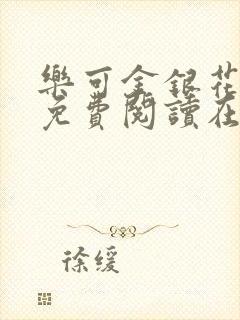 樂可金銀花
免費閱讀在
徐缓